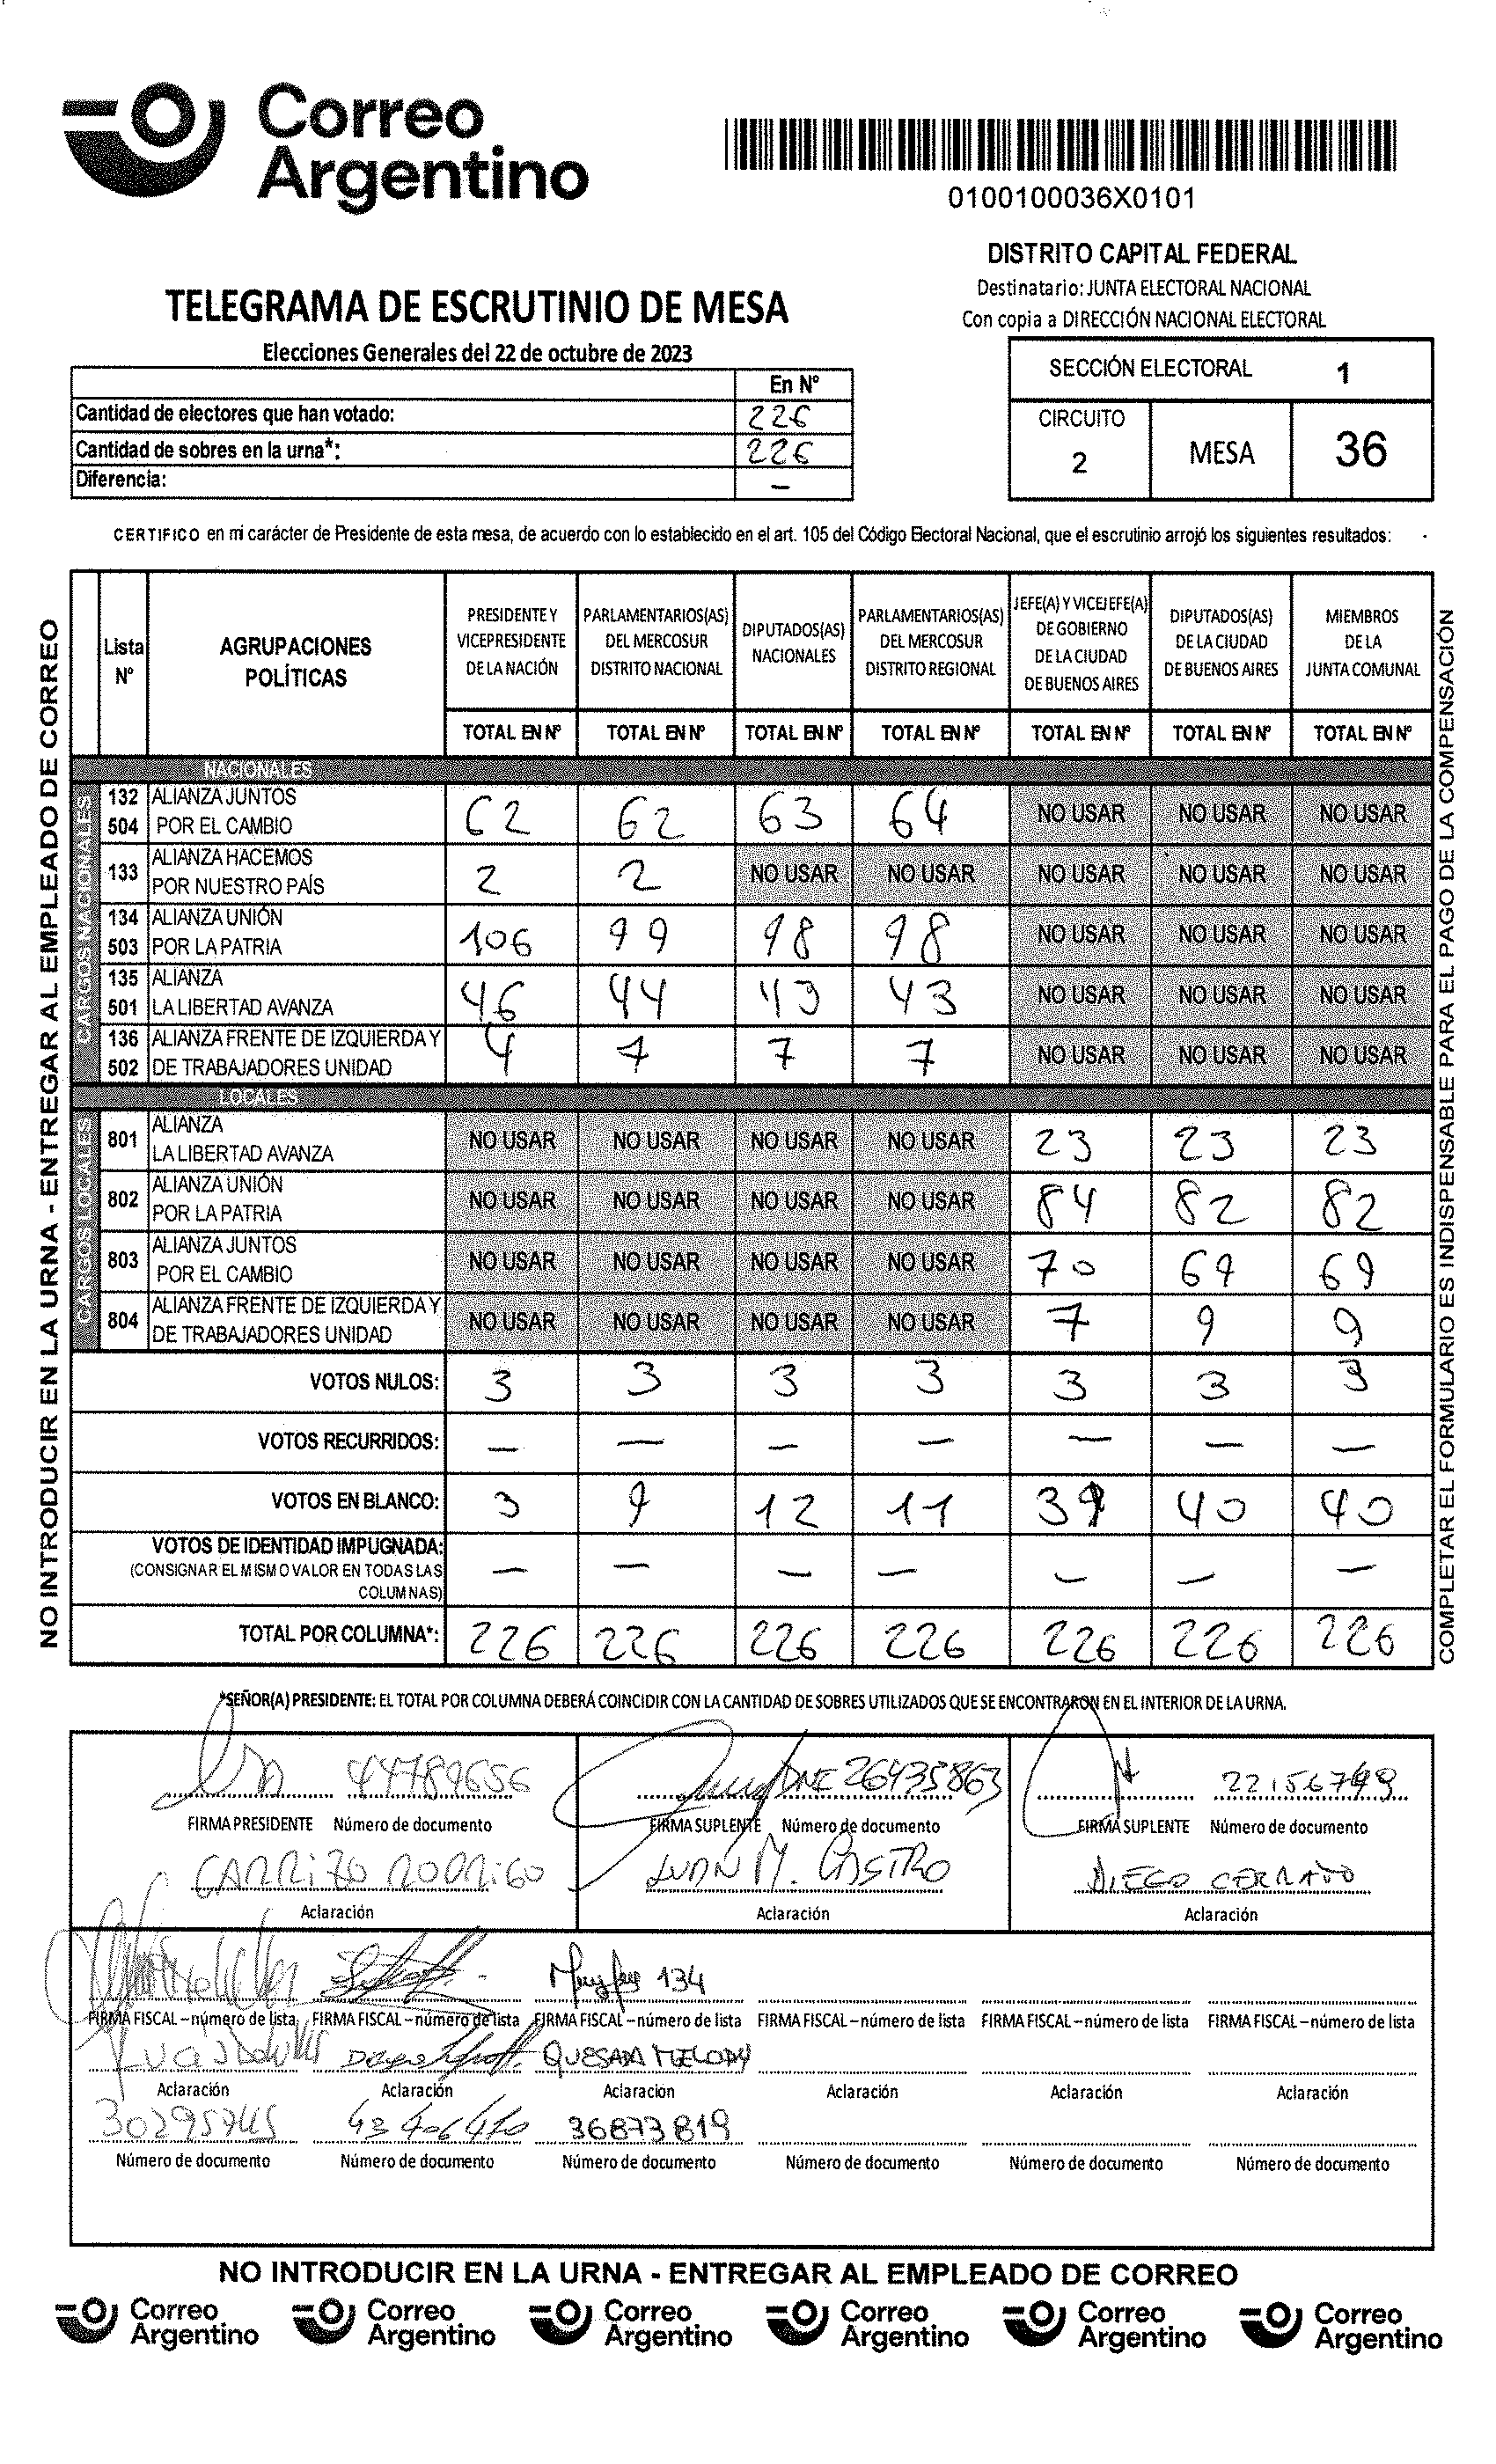 Correo
Argentino
0100100036X0101
DISTRITO CAPITAL FEDERAL
Destinatario: JUNTA ELECTORAL NACIONAL
Con copia a DIRECCIÓN NACIONAL ELECTORAL
TELEGRAMA DE ESCRUTINIO DE MESA
Elecciones Generales del 22 de octubre de 2023
En Nº
Cantidad de electores que han votado: 226
Cantidad de sobres en la urna*: 226
Diferencia: –
SECCIÓN ELECTORAL 1
CIRCUITO 2 MESA 36
CERTIFICO en mi carácter de Presidente de esta mesa, de acuerdo con lo establecido en el art. 105 del Código Electoral Nacional, que el escrutinio arrojó los siguientes resultados:
NO INTRODUCIR EN LA URNA - ENTREGAR AL EMPLEADO DE CORREO
Lista Nº AGRUPACIONES POLÍTICAS PRESIDENTE Y VICEPRESIDENTE DE LA NACIÓN PARLAMENTARIOS(AS) DEL MERCOSUR DISTRITO NACIONAL DIPUTADOS(AS) NACIONALES PARLAMENTARIOS(AS) DEL MERCOSUR DISTRITO REGIONAL JEFE(A) Y VICEJEFE(A) DE GOBIERNO DE LA CIUDAD DE BUENOS AIRES DIPUTADOS(AS) DE LA CIUDAD DE BUENOS AIRES MIEMBROS DE LA JUNTA COMUNAL
TOTAL EN Nº TOTAL EN Nº TOTAL EN Nº TOTAL EN Nº TOTAL EN Nº TOTAL EN Nº TOTAL EN Nº
NACIONALES
CARGOS NACIONALES
132 504 ALIANZA JUNTOS POR EL CAMBIO 62 62 63 64 NO USAR NO USAR NO USAR
133 ALIANZA HACEMOS POR NUESTRO PAÍS 2 2 NO USAR NO USAR NO USAR NO USAR NO USAR
134 503 ALIANZA UNIÓN POR LA PATRIA 106 99 98 98 NO USAR NO USAR NO USAR
135 501 ALIANZA LA LIBERTAD AVANZA 46 44 43 43 NO USAR NO USAR NO USAR
136 502 ALIANZA FRENTE DE IZQUIERDA Y DE TRABAJADORES UNIDAD 4 7 7 7 NO USAR NO USAR NO USAR
LOCALES
CARGOS LOCALES
801 ALIANZA LA LIBERTAD AVANZA NO USAR NO USAR NO USAR NO USAR 23 23 23
802 ALIANZA UNIÓN POR LA PATRIA NO USAR NO USAR NO USAR NO USAR 84 82 82
803 ALIANZA JUNTOS POR EL CAMBIO NO USAR NO USAR NO USAR NO USAR 70 69 69
804 ALIANZA FRENTE DE IZQUIERDA Y DE TRABAJADORES UNIDAD NO USAR NO USAR NO USAR NO USAR 7 9 9
VOTOS NULOS: 3 3 3 3 3 3 3
VOTOS RECURRIDOS: – – – – – – –
VOTOS EN BLANCO: 3 9 12 11 39 40 40
VOTOS DE IDENTIDAD IMPUGNADA: (CONSIGNAR EL MISMO VALOR EN TODAS LAS COLUMNAS) – – – – – – –
TOTAL POR COLUMNA*: 226 226 226 226 226 226 226
COMPLETAR EL FORMULARIO ES INDISPENSABLE PARA EL PAGO DE LA COMPENSACIÓN
*SEÑOR(A) PRESIDENTE: EL TOTAL POR COLUMNA DEBERÁ COINCIDIR CON LA CANTIDAD DE SOBRES UTILIZADOS QUE SE ENCONTRARON EN EL INTERIOR DE LA URNA.
44789656 DNE 26435863 22156749
FIRMA PRESIDENTE Número de documento FIRMA SUPLENTE Número de documento FIRMA SUPLENTE Número de documento
CARRIZO RODRIGO JUAN M. CASTRO DIEGO CERRATO
Aclaración Aclaración Aclaración
134
FIRMA FISCAL – número de lista FIRMA FISCAL – número de lista FIRMA FISCAL – número de lista FIRMA FISCAL – número de lista FIRMA FISCAL – número de lista FIRMA FISCAL – número de lista
QUESADA MELODY
Aclaración Aclaración Aclaración Aclaración Aclaración Aclaración
30295745 43406410 36873819
Número de documento Número de documento Número de documento Número de documento Número de documento Número de documento
NO INTRODUCIR EN LA URNA - ENTREGAR AL EMPLEADO DE CORREO
Correo Correo Correo Correo Correo Correo
Argentino Argentino Argentino Argentino Argentino Argentino